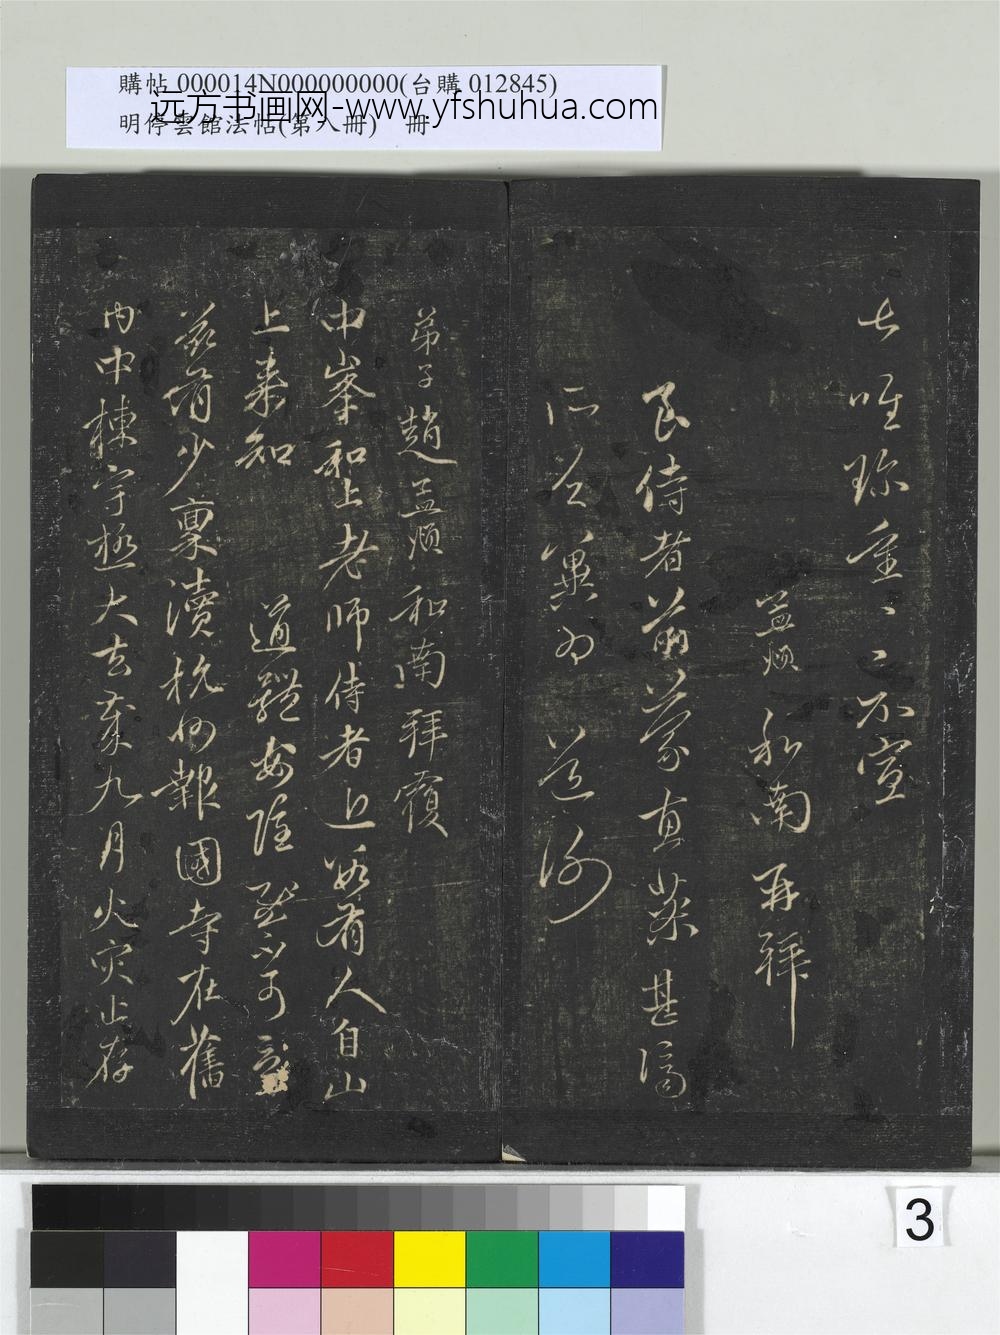 購帖 000014N000000000(台購 012845)
明停雲館法帖(第八冊) 冊
远方书画网-www.yfshuhua.com
士唯珍重〻〻不宣
孟頫和南再拜
良侍者前蒙惠藥甚濟
所差冀為道謝
弟子趙孟頫和南拜覆
中峯和上老師侍者近以有人自山
上來知 道體安隱
茲有少稟瀆杭州報國寺在舊
內中棟宇極大去歲九月火災止存
3